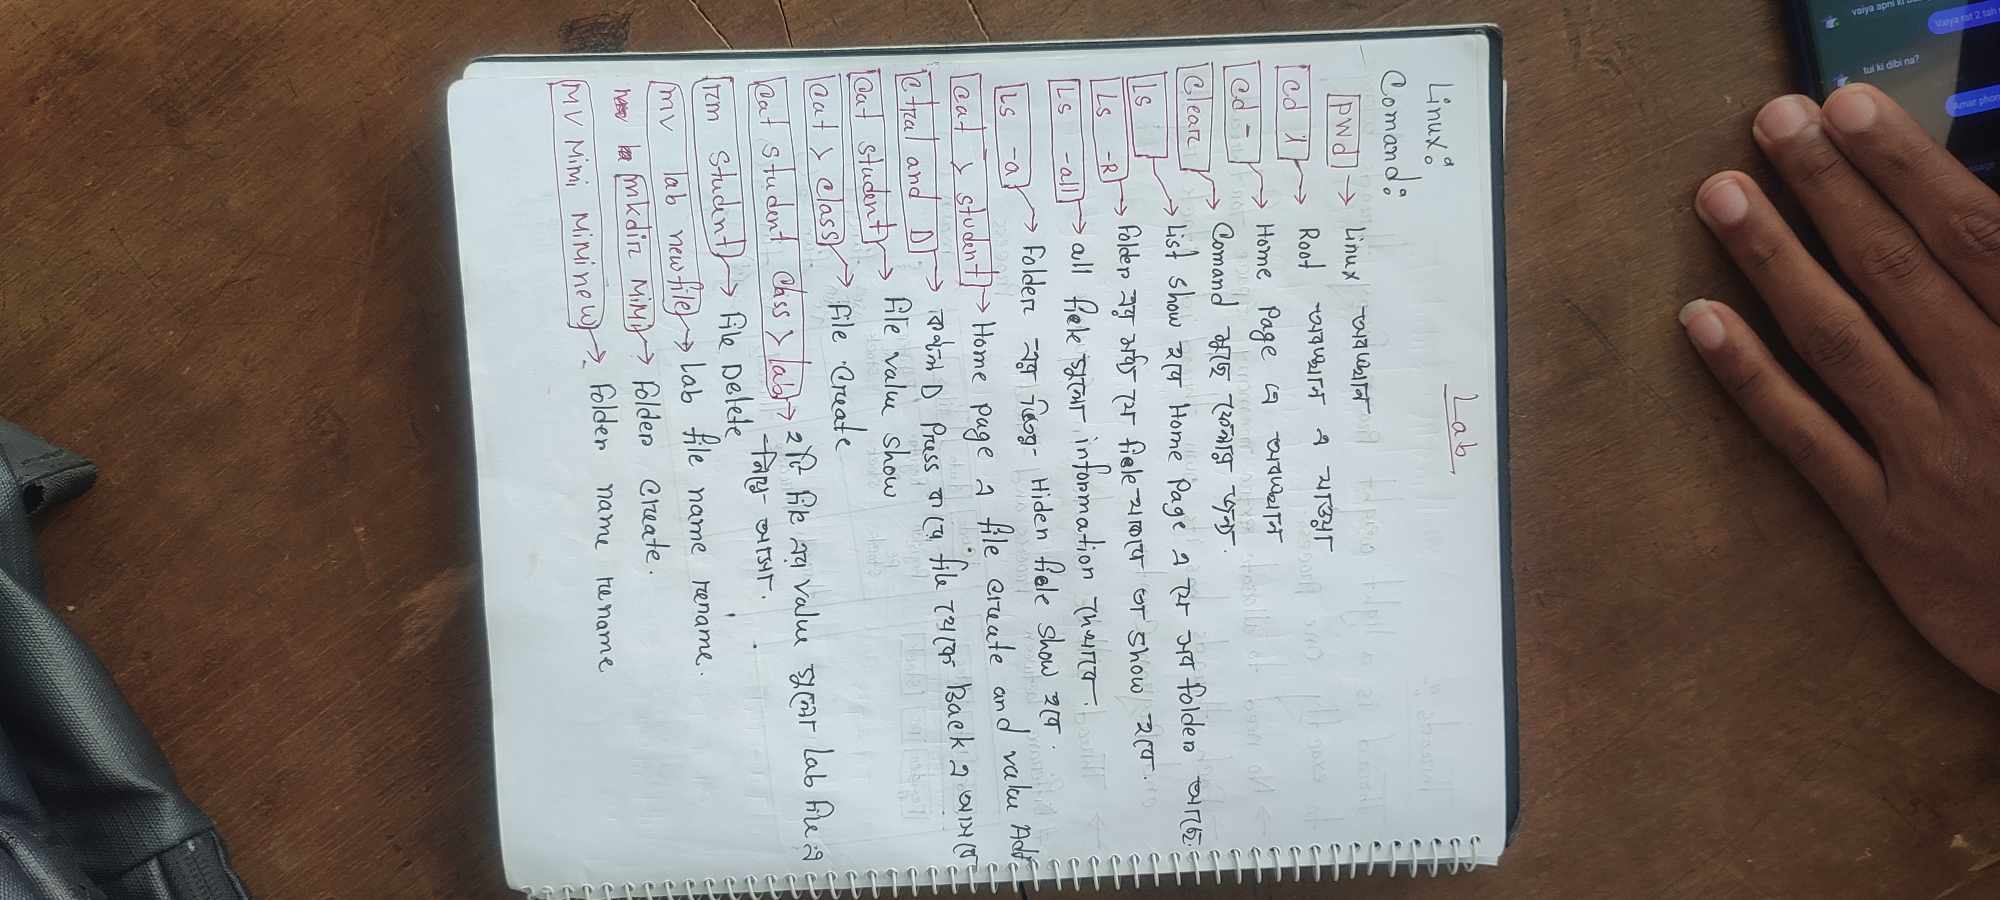 vaiya apni ki
vaiya rat 2 tah
tui ki dibi na?
Amar phon
Lab
Linux:
Comand:
pwd → Linux অবস্থান
cd / → Root অবস্থান এ যাওয়া
cd - → Home Page এ অবস্থান
Clear → Comand মুছে ফেলার জন্য.
Ls → List show হবে Home Page এ যে সব folder আছে.
Ls -R → folder এর মধ্যে যে fiele থাকবে তা show হবে.
Ls -all → all fiele গুলো information দেখাবে.
Ls -a → Folder এর ভিতর Hiden fiele show হবে.
cat > student → Home page এ file create and value Add
Ctral and D → কন্টল D Press করে file থেকে Back এ আসবে
Cat student → file value show
Cat > class → file Create
Cat student Class > lab → ২টি file এর value গুলো Lab file এ
নিয়ে আসা.
rm student → file Delete
mv lab newfile → Lab file name rename.
mkdir MiMi → folder Create.
MV Mimi MiMinew → folder name rename